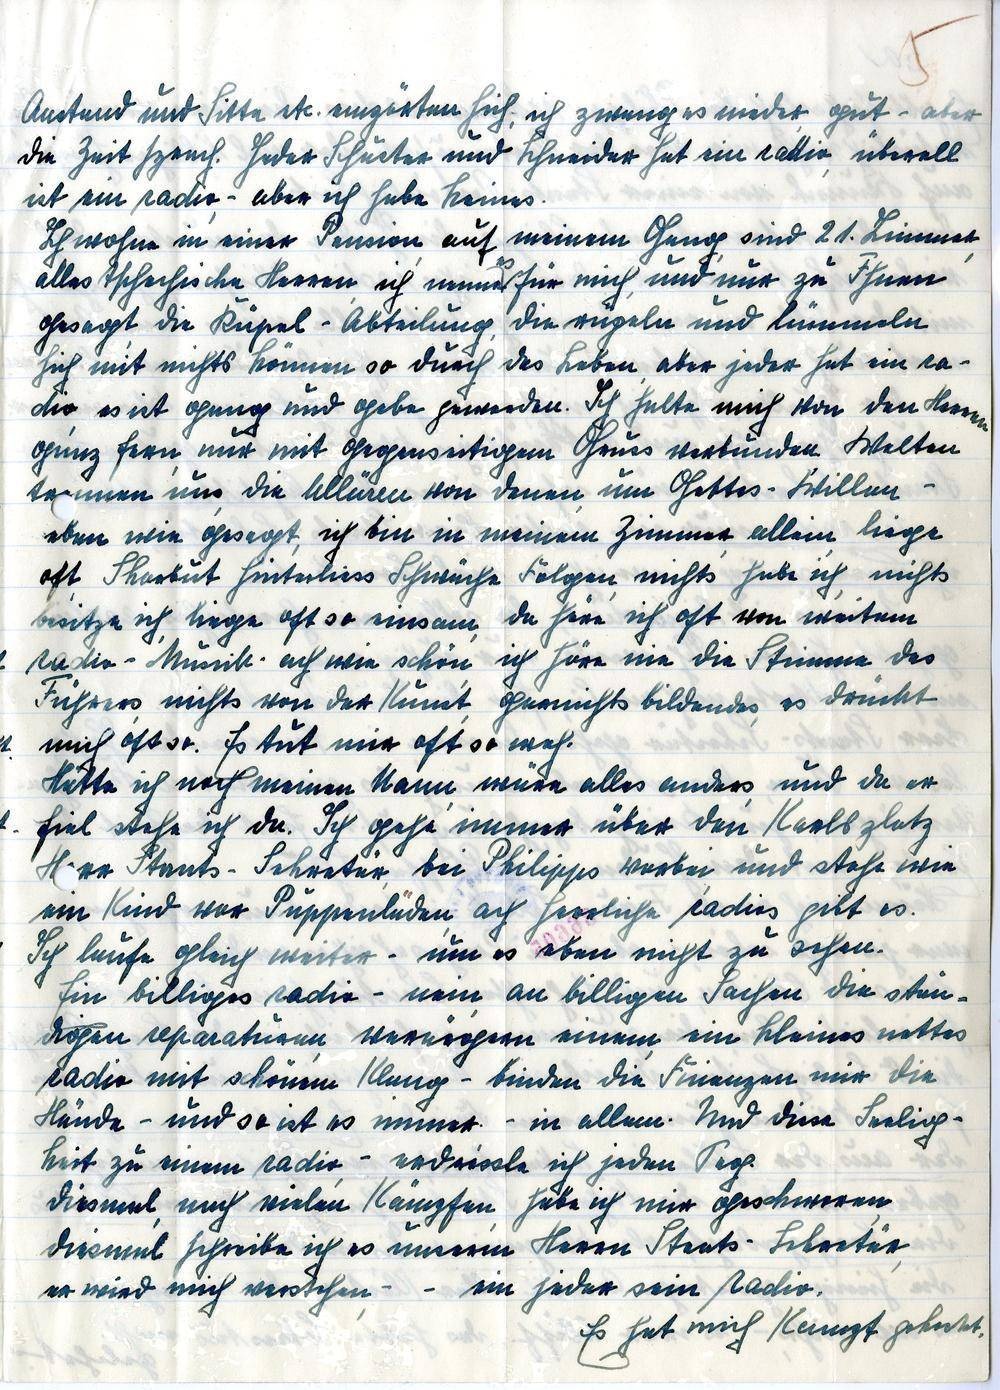 5
Anstand und Sitte etc. empörten sich, ich zwang es nieder, gut - aber
die Zeit sprach. Jeder Schuster und Schneider hat ein radio, überall
ist ein radio, - aber ich habe keines.
Ich wohne in einer Pension, auf meinem Gang sind 21. Zimmer,
alles tschechische Herren, ich nenne es für mich, und nur zu Ihnen
gesagt die Rüpel - Abteilung, die rüpeln und lümmeln
sich mit nichts können so durch das Leben, aber jeder hat ein ra-
dio, es ist gang und gebe geworden. Ich halte mich von den Herren
ganz fern, nur mit gegenseitigem Gruss verbunden. Welten
trennen uns, die Allüren von denen, um Gottes - Willen -
eben wie gesagt, ich bin in meinem Zimmer, allein, liege
oft, Skorbut hinterliess Schwäche Folgen, nichts habe ich, nichts
besitze ich, liege oft so einsam, da höre ich oft von weitem
radio - Musik - ach wie schön, ich höre nie die Stimme des
Führers, nichts von der Kunst, garnichts bildendes, es drückt
mich oft so. Es tut mir oft so weh.
Hätte ich noch meinen Mann, wäre alles anders, und da er
fiel stehe ich da. Ich gehe immer über den Karlsplatz
Herr Staats - Sekretär, bei Philipps vorbei und stehe wie
ein Kind vor Puppenläden, ach herrliche radios gibt es.
Ich laufe gleich weiter - um es eben nicht zu sehen.
Ein billiges radio - nein, an billigen Sachen die stän-
digen reparaturen, verärgern einem, ein kleines nettes
radio mit schönem Klang - binden die Finanzen mir die
Hände - und so ist es immer. - in allem. Und diese Seelig-
keit zu einem radio, - erdrossle ich jeden Tag.
Diesmal, nach vielen Kämpfen, habe ich mir geschworen,
diesmal schreibe ich es unserm Herrn Staats - Sekretär,
er wird mich verstehen, - - ein jeder sein radio.
Es hat mich Kampf gekostet.